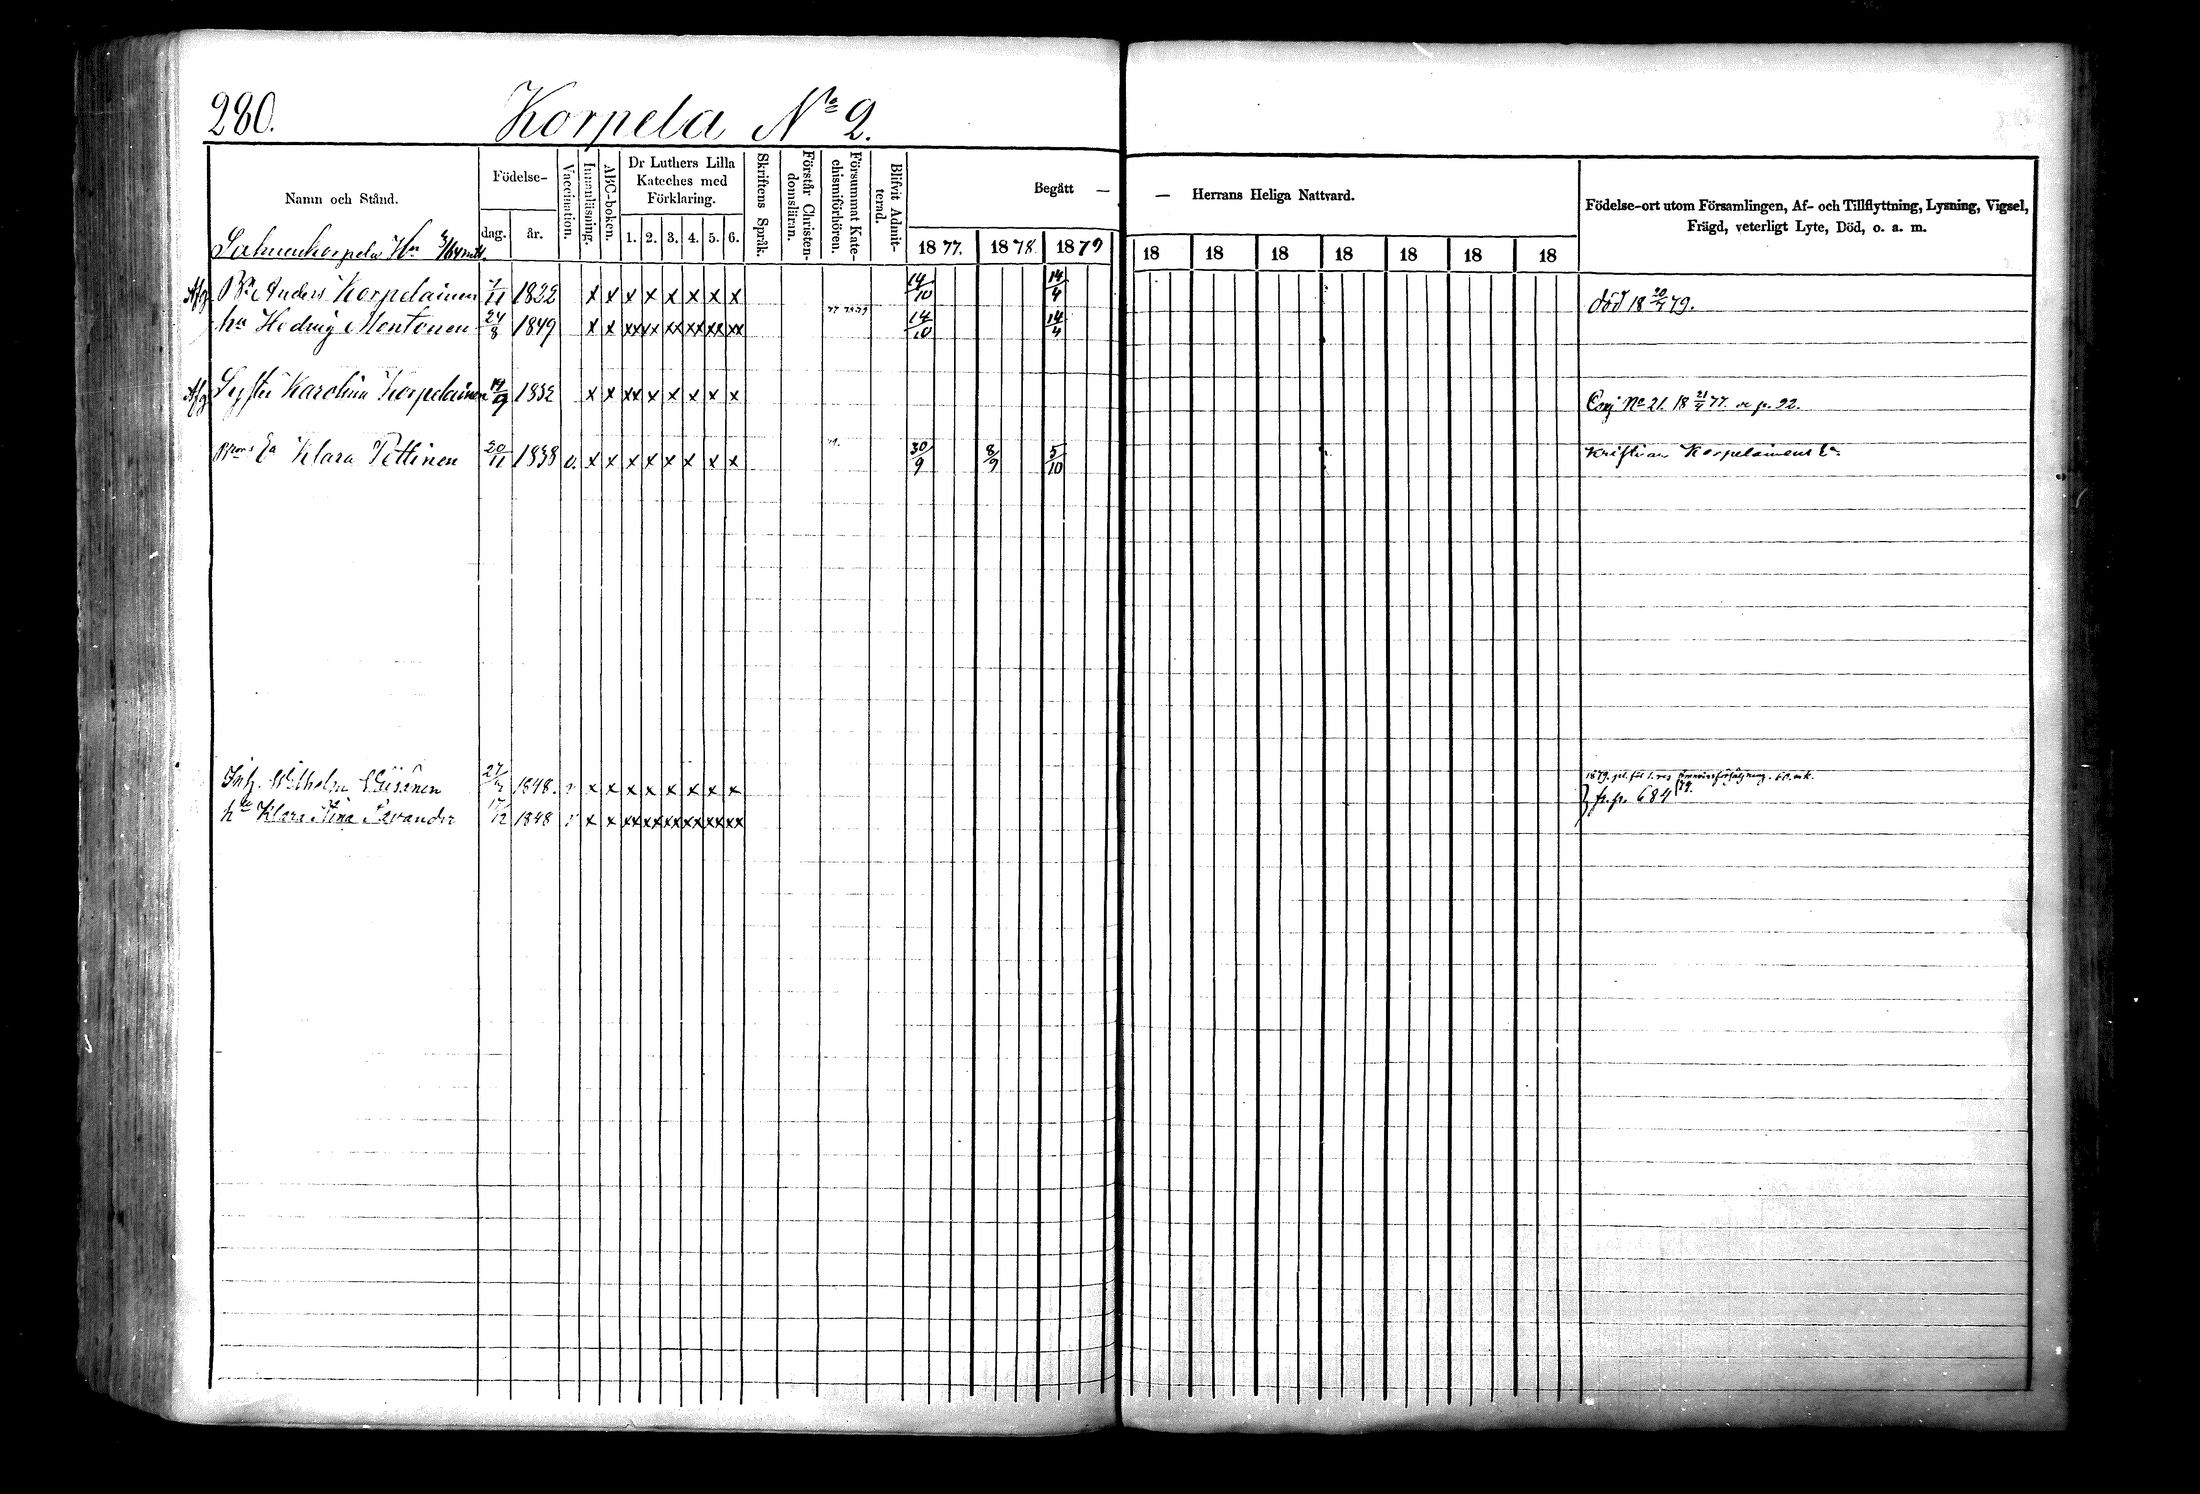 280. Korpela No 2.
Namn och Stånd.
Födelse-
dag. år.
Vaccination.
Innanläsning.
ABC-boken.
Dr Luthers Lilla
Kateches med
Förklaring.
1. 2. 3. 4. 5. 6.
Skriftens Språk.
Förstår Christen-
domsläran.
Försummat Kate-
chismiförhören.
Blifvit Admit-
terad.
Begått —
— Herrans Heliga Nattvard.
1877. 1878. 1879 18 18 18 18 18 18 18
Födelse-ort utom Församlingen, Af- och Tillflyttning, Lysning, Vigsel,
Frägd, veterligt Lyte, Död, o. a. m.
Afg Anders Korpelainen 11 1822 x x x x x x x x 14/10 14/4 död 18 20/4 79.
hu Hedvig Montonen 24/8 1849 x x xx xx xx xx xx xx 14/10 14/4
Afg Syster Karolina Korpelainen 14/9 1832 x x xx x x x x x No 21. 18 21/4 77. p. 22.
Ea Klara Pettinen 20/11 1838 v. x x x x x x x x 30/9 8/9 5/10 Kristian Korpelainens Ea.
Inh. Wilhelm Väisänen 27 1848. v x x x x x x x x 1879
hu Klara Stina Savander 17/12 1848 v x x xx xx xx xx xx xx fr. p. 684